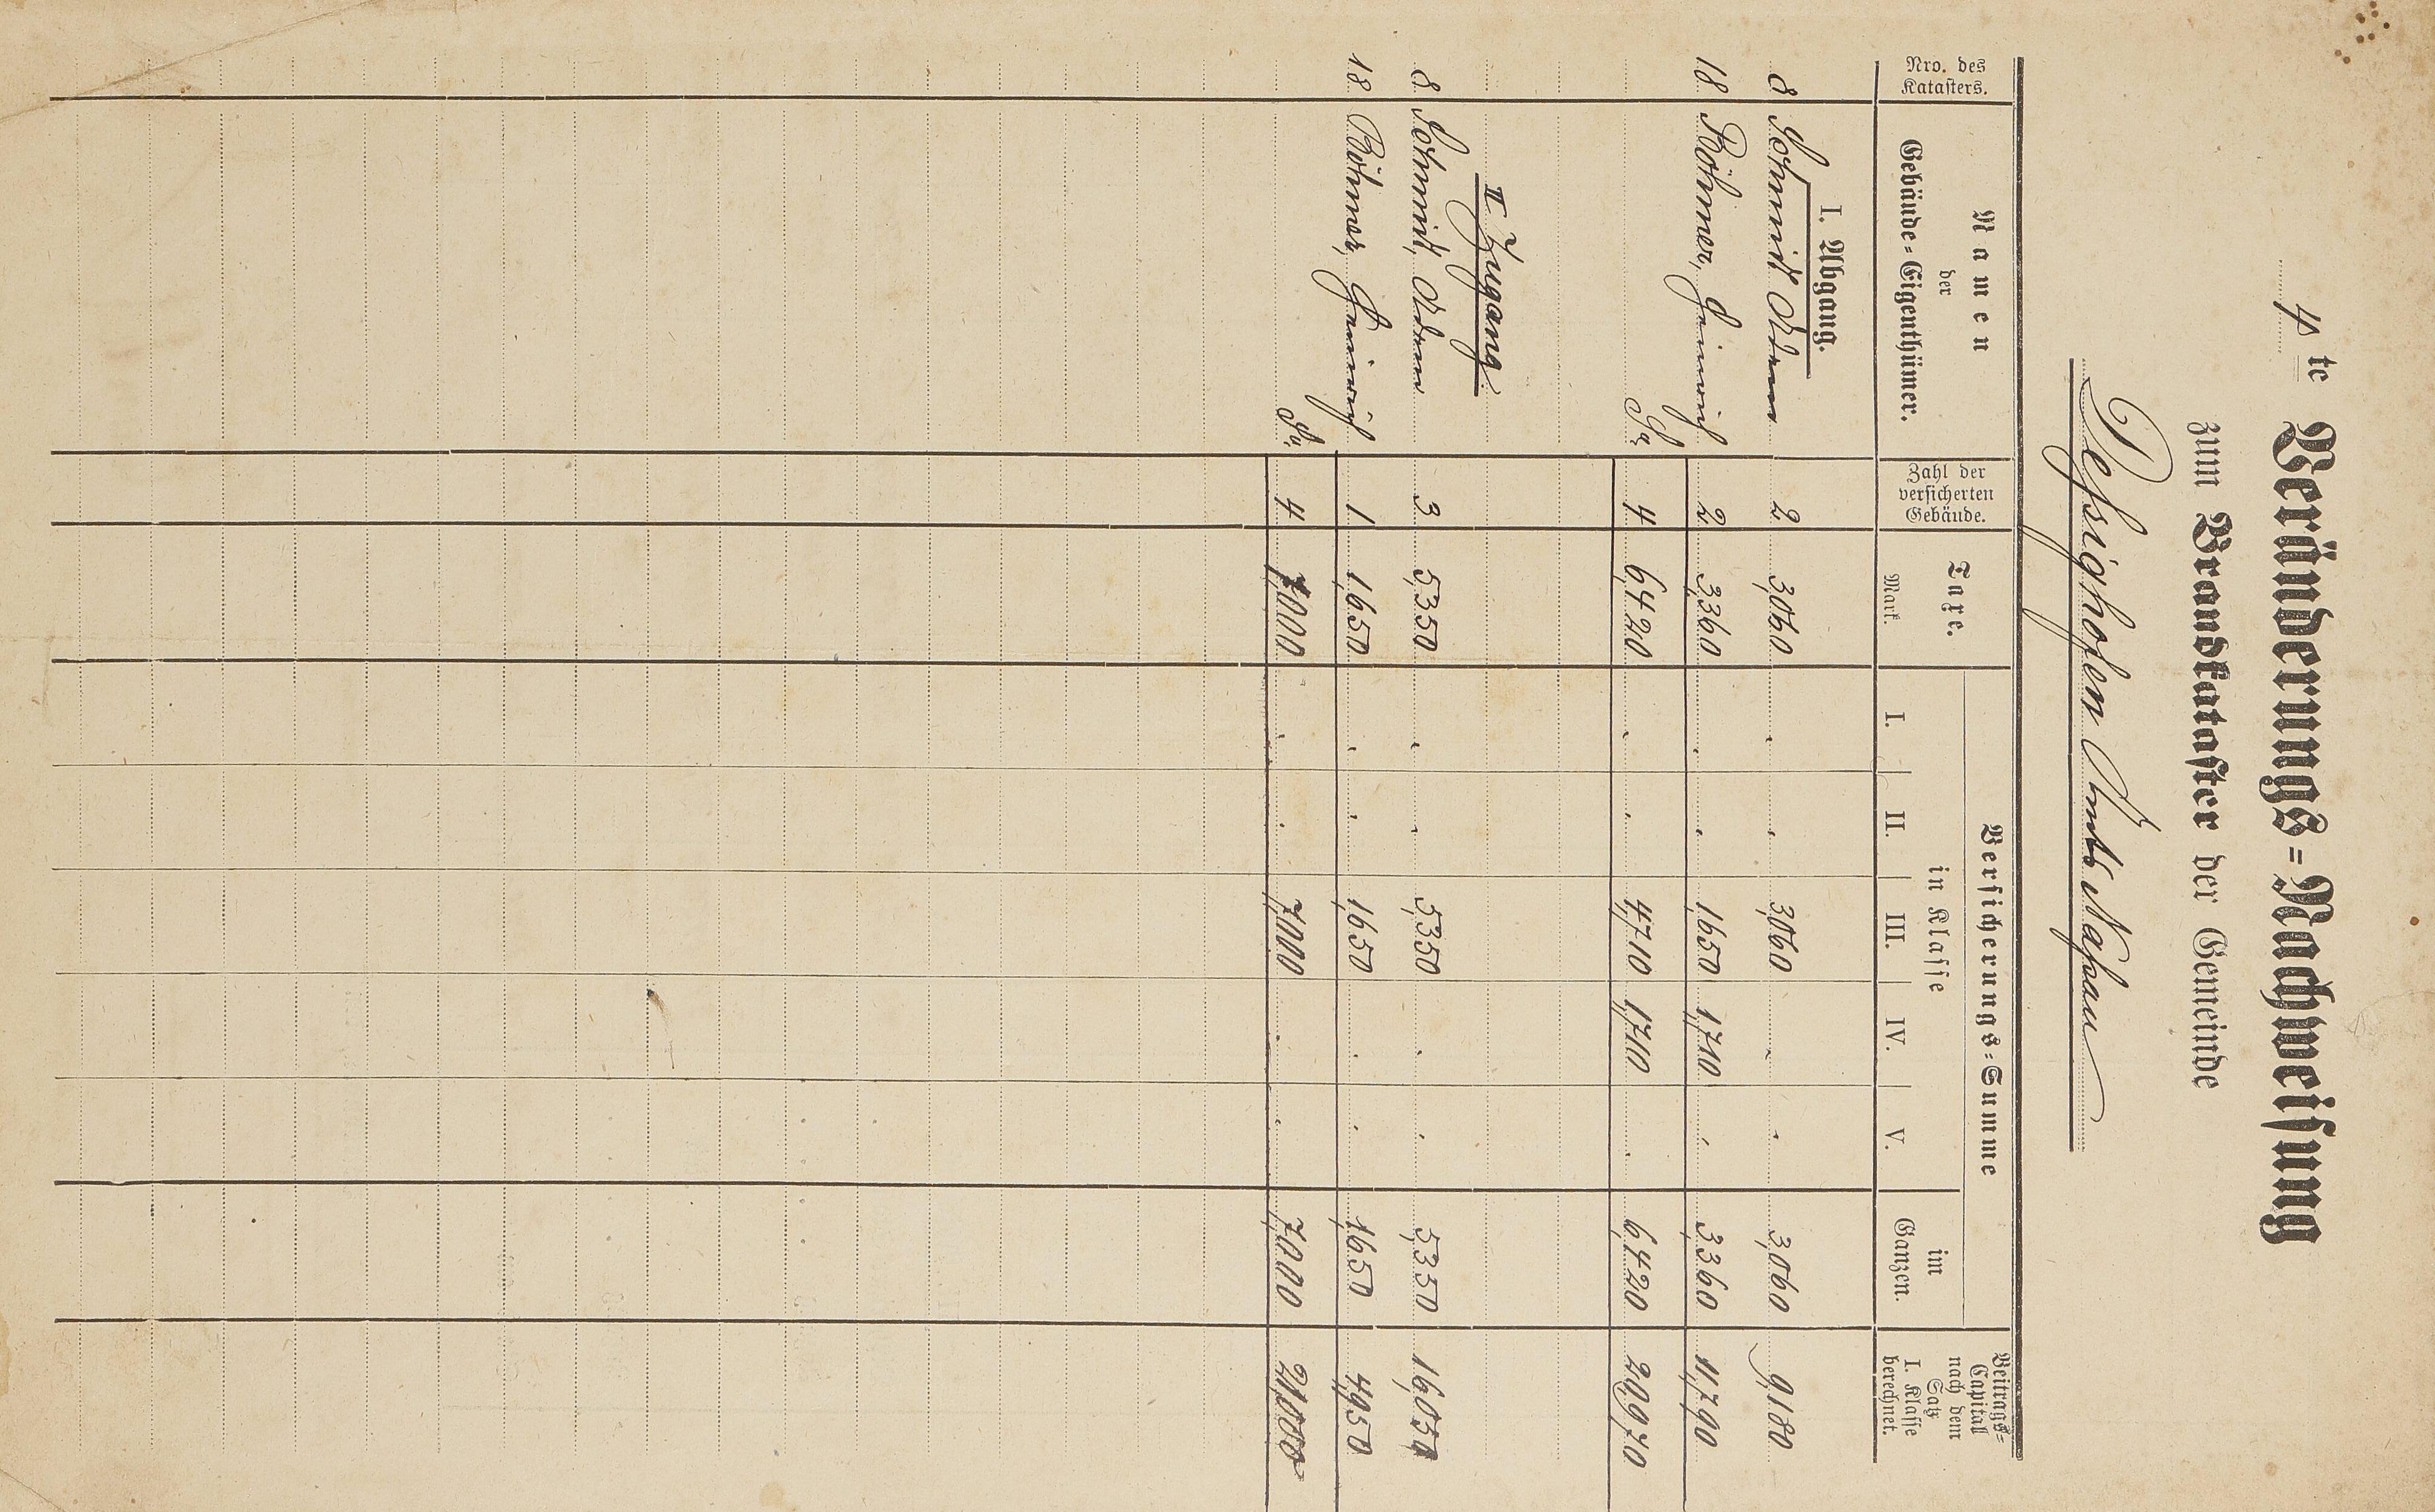 4 te Veränderungs=Nachweisung
zum Brandkataster der Gemeinde
Dessighofen Amts Nassau
Nro. des Katasters.
Namen der Gebäude=Eigenthümer.
Zahl der versicherten Gebäude.
Taxe. Mark.
Versicherungs=Summe
in Klasse
I. II. III. IV. V.
im Ganzen.
Beitrags=Capital nach dem Satz I. Klasse berechnet.
I. Abgang.
8 Schmidt Adam 2 3,060 " " 3,060 " " 3,060 9,180
18 Böhmer, Heinrich 2 3,360 " " 1,650 1,710 " 3,360 11,790
Sa. 4 6,420 " " 4,710 1,710 " 6,420 20,970
II Zugang
8 Schmidt, Adam 3 5,350 " " 5,350 " " 5,350 16,050
18 Böhmer, Heinrich 1 1,650 " " 1,650 " " 1,650 4,950
Sa. 4 7,000 " " 7,000 " " 7,000 21,000